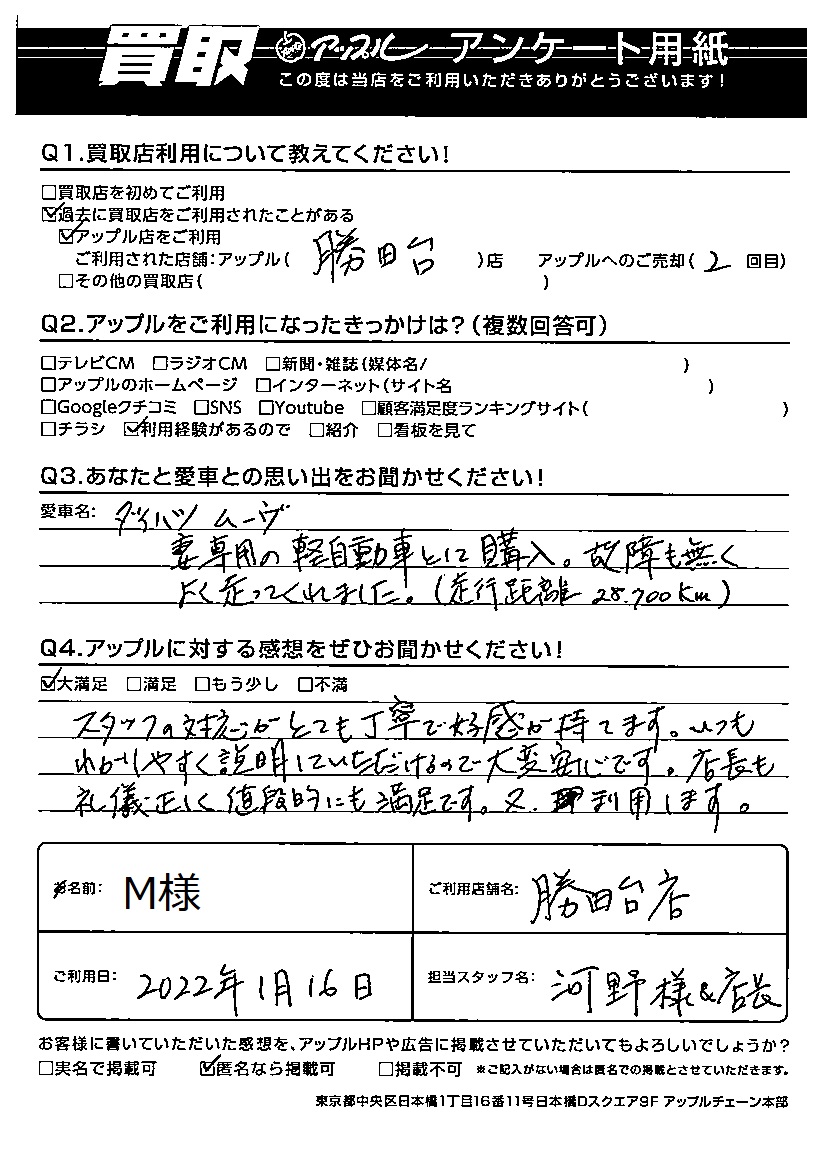 買取 アップル アンケート用紙
この度は当店をご利用いただきありがとうございます!
Q1.買取店利用について教えてください!
□買取店を初めてご利用
☑過去に買取店をご利用されたことがある
☑アップル店をご利用
ご利用された店舗:アップル( 勝田台 )店 アップルへのご売却( 2 回目)
□その他の買取店( )
Q2.アップルをご利用になったきっかけは?(複数回答可)
□テレビCM □ラジオCM □新聞・雑誌(媒体名/ )
□アップルのホームページ □インターネット(サイト名 )
□Googleクチコミ □SNS □Youtube □顧客満足度ランキングサイト( )
□チラシ ☑利用経験があるので □紹介 □看板を見て
Q3.あなたと愛車との思い出をお聞かせください!
愛車名: ダイハツ ムーヴ
妻専用の軽自動車とに購入。故障も無く
よく走ってくれました。(走行距離 28.700Km)
Q4.アップルに対する感想をぜひお聞かせください!
☑大満足 □満足 □もう少し □不満
スタッフの対応がとても丁寧で好感が持てます。いつも
わかりやすく説明していただけるので大変安心です。店長も
礼儀正しく値段的にも満足です。又、利用します。
名前: M様 ご利用店舗名: 勝田台店
ご利用日: 2022年1月16日 担当スタッフ名: 河野様&店長
お客様に書いていただいた感想を、アップルHPや広告に掲載させていただいてもよろしいでしょうか?
□実名で掲載可 ☑匿名なら掲載可 □掲載不可 ※ご記入がない場合は匿名での掲載とさせていただきます。
東京都中央区日本橋1丁目16番11号日本橋Dスクエア9F アップルチェーン本部